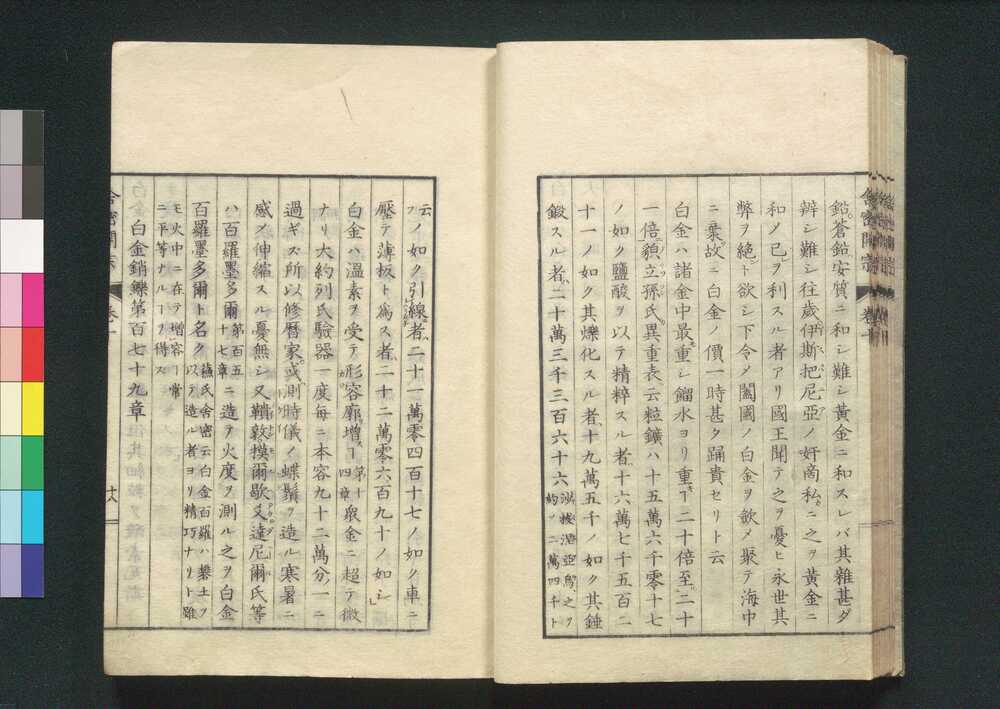 鉛蒼鉛安質ニ和シ難シ黃金ニ和スレバ其雜甚ダ
辨シ難シ往歲伊斯把尼亞ノ奸啇私ニ之ヲ黃金ニ
和ノ已ヲ利スル者アリ國王聞テ之ヲ憂ヒ永世其
弊ヲ絕ト欲シ下令メ闔國ノ白金ヲ歛メ聚テ海中
ニ棄故ニ白金ノ價一時甚タ踊貴セリト云
白金ハ諸金中最重シ餾水ヨリ重ヿ二十倍至二十
一倍貌立孫氏異重表云粒鑛ハ十五萬六千零十七
ノ如ク鹽酸ヲ以テ精粹スル者十六萬七千五百二
十一ノ如ク其爍化スル者十九萬五千ノ如ク其錘
鍛スル者二十萬三千三百六十六
之ヲ
約ノ二萬四千ト
云フノ如ク引線者二十一萬零四百十七ノ如ク車ニ
壓テ薄板ト爲ス者二十二萬零六百九十ノ如シ
白金ハ溫素ヲ受テ形容廓增ヿ第十四章衆金ニ超テ微
ナリ大約列氏驗器一度每ニ本容九十二萬分ノ一ニ
過ギス所以修曆家或測時儀ノ蝶鬚ヲ造ル寒暑ニ
感ノ伸縮スル憂無シ又鞱敦摸爾歇又達尼爾氏等
ハ百羅墨多爾第百五十七章ニ造テ火度ヲ測ル之ヲ白金
百羅墨多爾ト名ク
蘓氏舍密云白金百羅ハ礬土ヲ
以テ造ル者ヨリ精巧ナリト雖
モ火中ニ在テ增容ヿ常
ニ平等ナルヿヲ得ス
白金銷鑠第百七十九章
舍密開宗 卷十